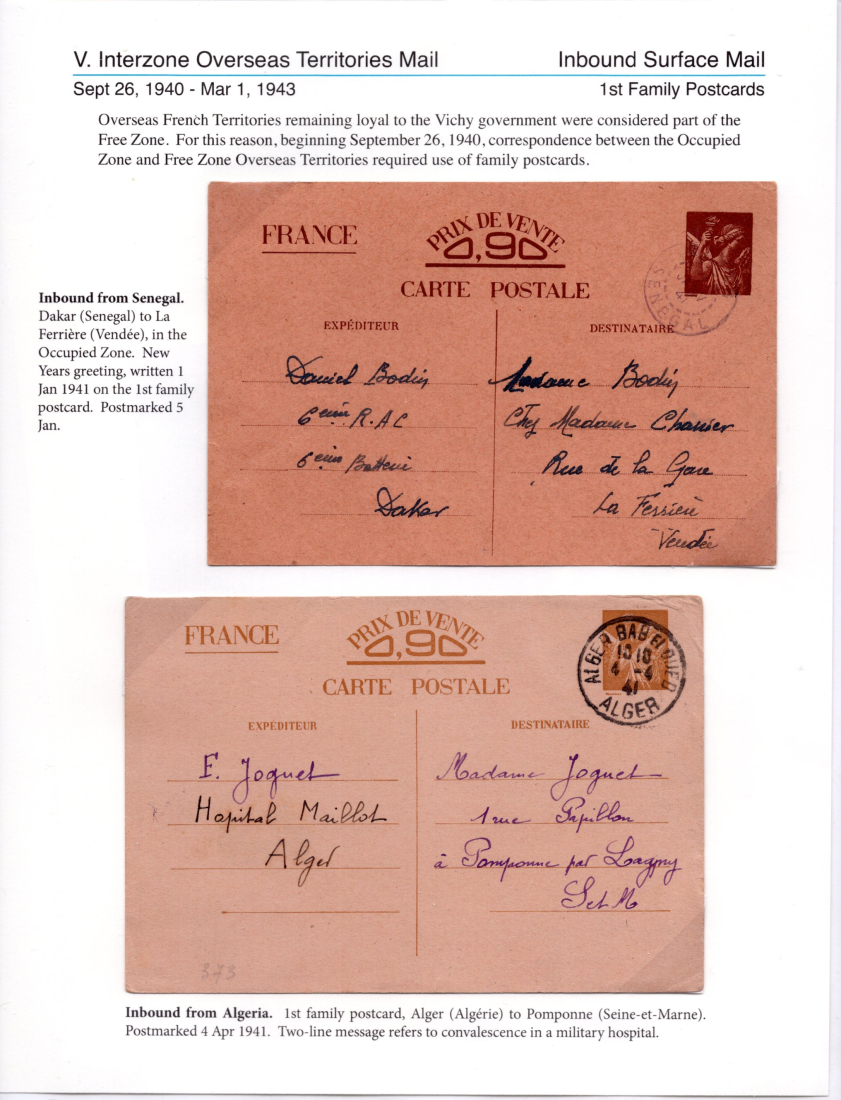 V. Interzone Overseas Territories Mail
Inbound Surface Mail
Sept 26, 1940 - Mar 1, 1943
1st Family Postcards
Overseas French Territories remaining loyal to the Vichy government were considered part of the
Free Zone. For this reason, beginning September 26, 1940, correspondence between the Occupied
Zone and Free Zone Overseas Territories required use of family postcards.
Inbound from Senegal.
Dakar (Senegal) to La
Ferrière (Vendée), in the
Occupied Zone. New
Years greeting, written 1
Jan 1941 on the 1st family
postcard. Postmarked 5
Jan.
FRANCE
PRIX DE VENTE
0,90
CARTE POSTALE
SENEGAL
EXPÉDITEUR
Daniel Bodin
6eme R.A.C
6eme Batterie
Dakar
DESTINATAIRE
Madame Bodin
Chez Madame
Rue de la Gare
La Ferrière
Vendée
FRANCE
PRIX DE VENTE
0,90
CARTE POSTALE
ALGER BAB EL OUED
10 10
4 -4
41
ALGER
EXPÉDITEUR
F. Joguet
Hopital Maillot
Alger
DESTINATAIRE
Madame Joguet
1 rue Papillon
à Pomponne par Lagny
S et M
373
Inbound from Algeria. 1st family postcard, Alger (Algérie) to Pomponne (Seine-et-Marne).
Postmarked 4 Apr 1941. Two-line message refers to convalescence in a military hospital.